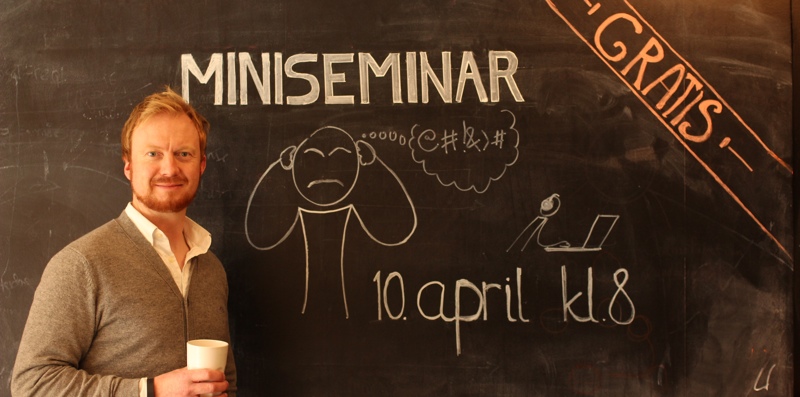 MINISEMINAR
GRATIS!
@#!&)#
10. april kl.8